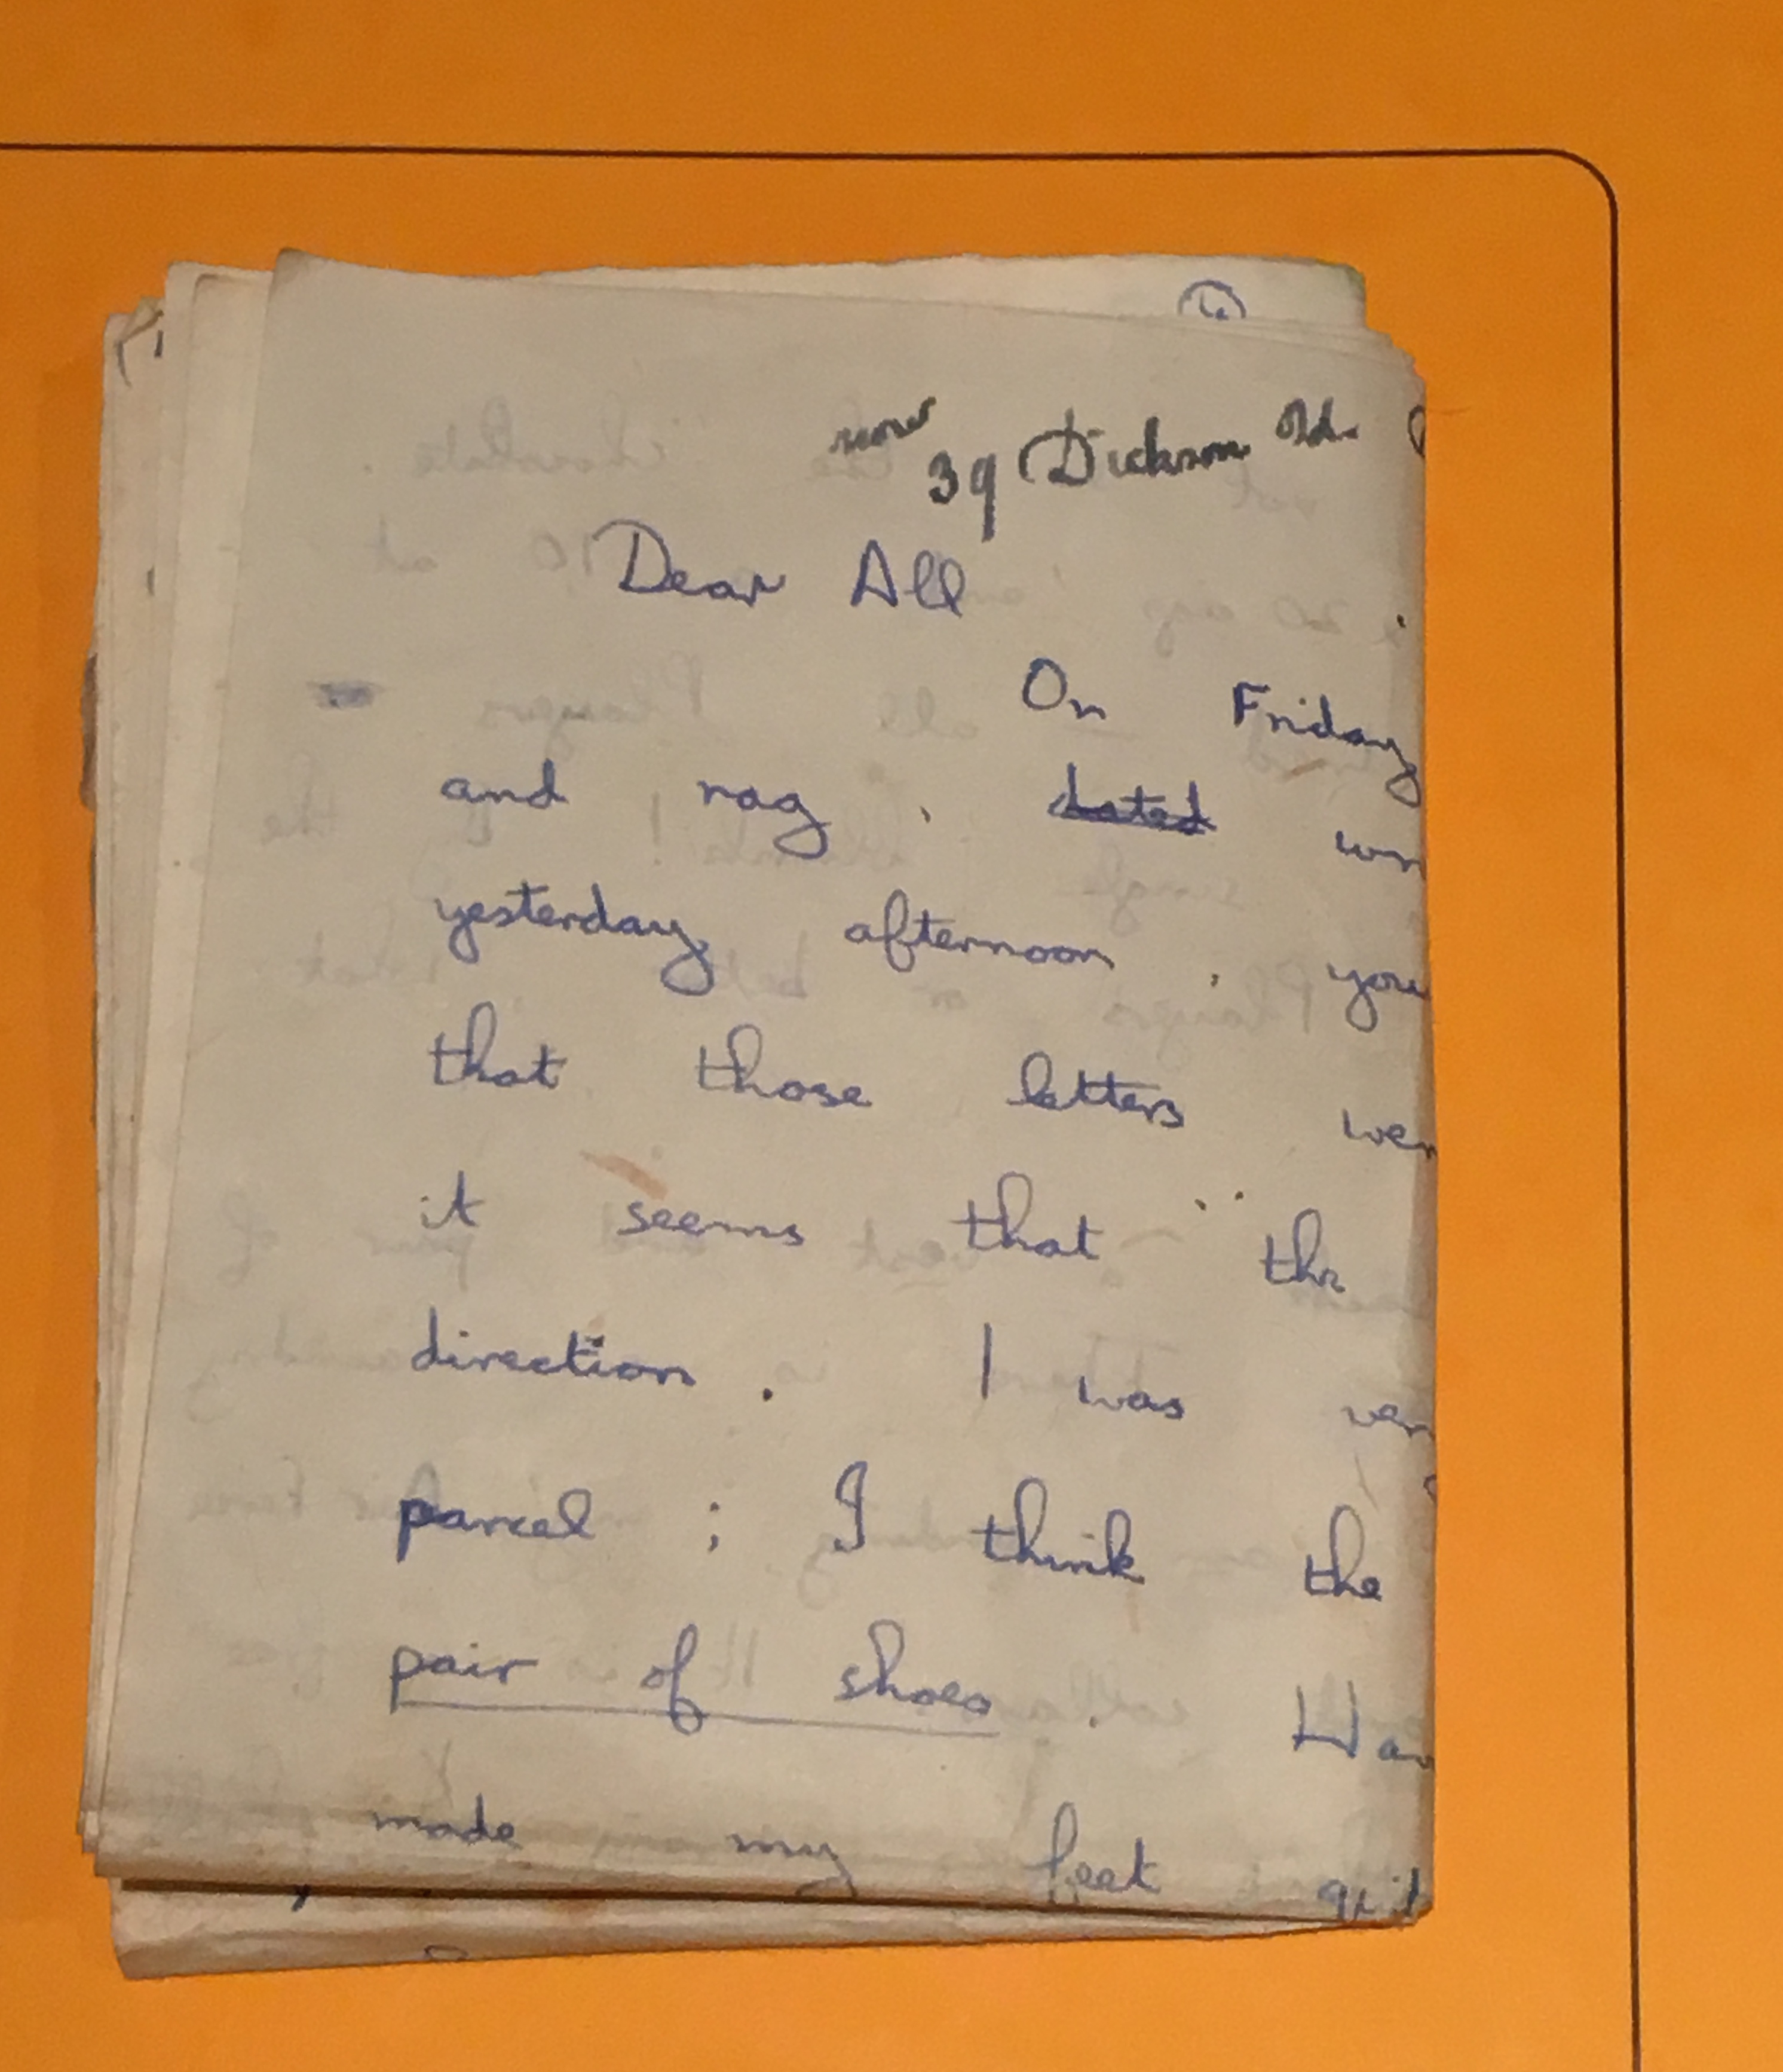 now
39 Dickson Rd.
Dear All
On Friday
and rag. dated wr
yesterday afternoon. you
that those letters wer
it seems that the
direction. I was ver
parcel; I think the
pair of shoes. Hav
made my feet quit